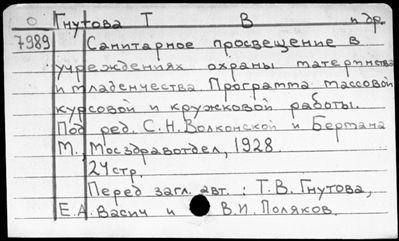 О Гнутова Т В и др.
7989 Санитарное просвещение в
учреждениях охраны материнства
и младенчества. Программа массовой
курсовой и кружковой работы.
Под ред. С.Н. Волконской и Бермана
М., Мосздравотдел, 1928.
24 стр.
Перед загл. авт.: Т.В. Гнутова,
Е.А. Васич и В.И. Поляков.